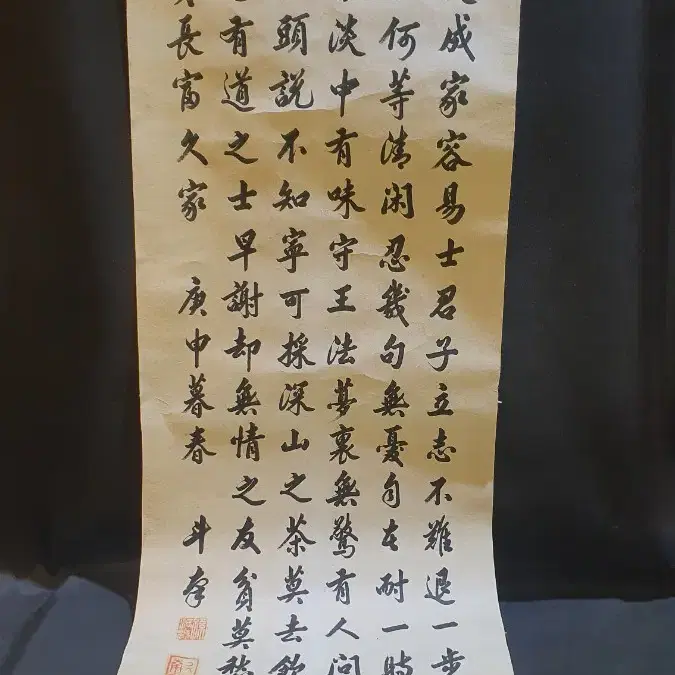 成家容易士君子立志不難退一步
何等清閑忍幾句無憂自在耐一時
淡中有味守王法夢裏無驚有人問
頭說不知寧可採深山之茶莫去飲
有道之士早謝却無情之友貧莫愁
長富久家 庚申暮春 斗